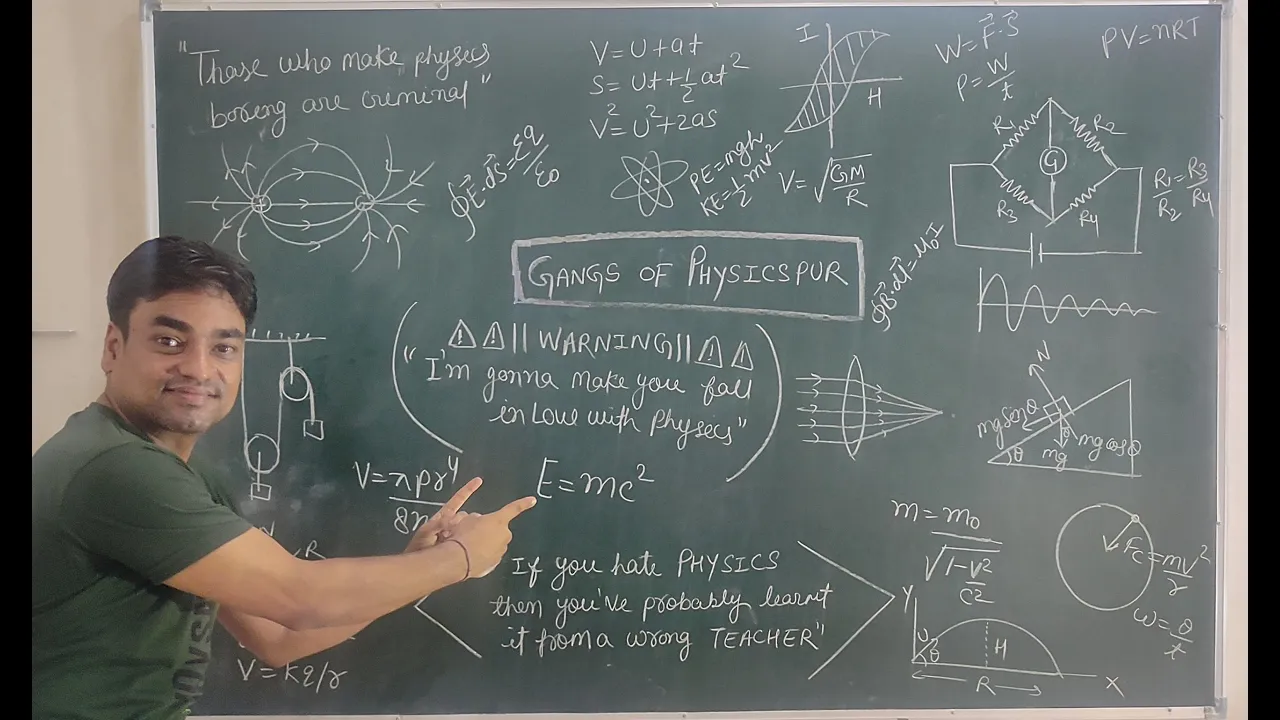 "Those who make physics
boring are criminal"
V=U+at
S=Ut+½at²
V²=U²+2as
I
H
W=F⃗·S⃗
P=W/t
PV=nRT
∮E⃗·dS⃗=Σq/ε₀
PE=mgh
KE=½mV²
V=√GM/R
R₁
R₂
G
R₃
R₄
R₁/R₂=R₃/R₄
GANGS OF PHYSICSPUR
∮B⃗·dl⃗=μ₀I
⚠⚠||WARNING||⚠⚠
"I'm gonna make you fall
in Love with Physics"
N
mgsinθ
θ
mgcosθ
mg
θ
V=πpr⁴/8η
E=mc²
m=m₀/√1-V²/C²
Fc=mv²/r
ω=θ/t
If you hate PHYSICS
then you've probably learnt
it from a wrong TEACHER"
R
V=kq/r
Y
U
θ
H
R
X